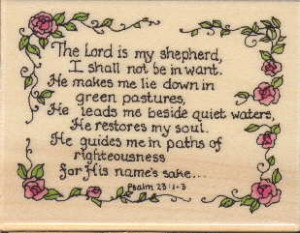 The Lord is my shepherd,
I shall not be in want.
He makes me lie down in
green pastures,
He leads me beside quiet waters,
He restores my soul.
He guides me in paths of
righteousness
for His name's sake...
Psalm 23:1-3